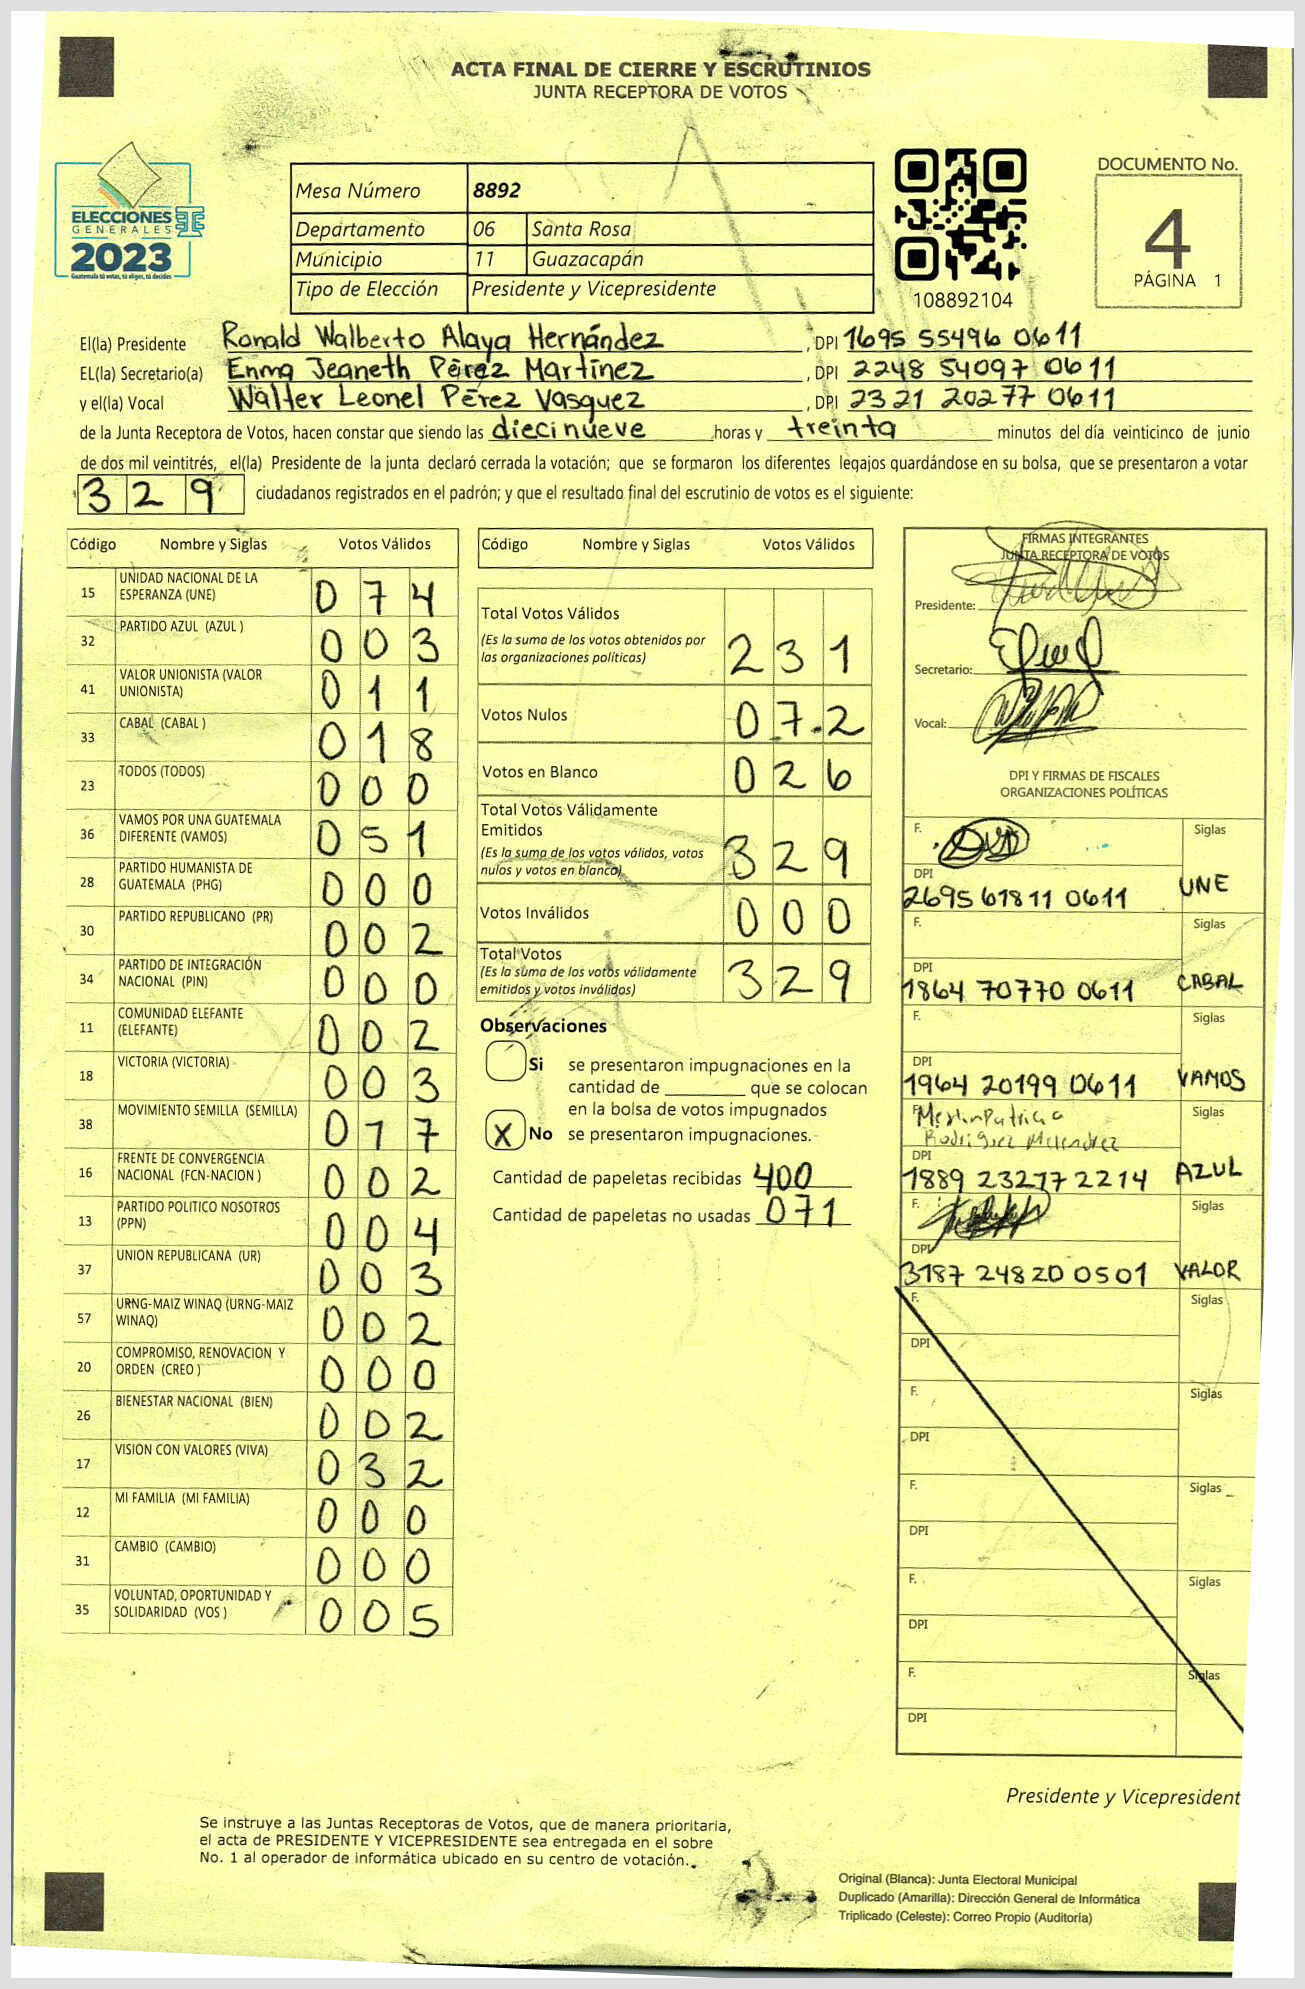 ACTA FINAL DE CIERRE Y ESCRUTINIOS
JUNTA RECEPTORA DE VOTOS
ELECCIONES
GENERALES
2023
Guatemala tú votas, tú eliges, tú decides
Mesa Número 8892
Departamento 06 Santa Rosa
Municipio 11 Guazacapán
Tipo de Elección Presidente y Vicepresidente
108892104
DOCUMENTO No.
4
PÁGINA 1
El(la) Presidente Ronald Walberto Alaya Hernández , DPI 1695 55496 0611
EL(la) Secretario(a) Enma Jeaneth Pérez Martínez , DPI 2248 54097 0611
y el(la) Vocal Walter Leonel Pérez Vasquez , DPI 2321 20277 0611
de la Junta Receptora de Votos, hacen constar que siendo las diecinueve horas y treinta minutos del día veinticinco de junio
de dos mil veintitrés, el(la) Presidente de la junta declaró cerrada la votación; que se formaron los diferentes legajos quardándose en su bolsa, que se presentaron a votar
329 ciudadanos registrados en el padrón; y que el resultado final del escrutinio de votos es el siguiente:
Código Nombre y Siglas Votos Válidos
15 UNIDAD NACIONAL DE LA
ESPERANZA (UNE) 074
32 PARTIDO AZUL (AZUL ) 003
41 VALOR UNIONISTA (VALOR
UNIONISTA) 011
33 CABAL (CABAL ) 018
23 TODOS (TODOS) 000
36 VAMOS POR UNA GUATEMALA
DIFERENTE (VAMOS) 051
28 PARTIDO HUMANISTA DE
GUATEMALA (PHG) 000
30 PARTIDO REPUBLICANO (PR) 002
34 PARTIDO DE INTEGRACIÓN
NACIONAL (PIN) 000
11 COMUNIDAD ELEFANTE
(ELEFANTE) 002
18 VICTORIA (VICTORIA) 003
38 MOVIMIENTO SEMILLA (SEMILLA) 017
16 FRENTE DE CONVERGENCIA
NACIONAL (FCN-NACION ) 002
13 PARTIDO POLITICO NOSOTROS
(PPN) 004
37 UNION REPUBLICANA (UR) 003
57 URNG-MAIZ WINAQ (URNG-MAIZ
WINAQ) 002
20 COMPROMISO, RENOVACION Y
ORDEN (CREO ) 000
26 BIENESTAR NACIONAL (BIEN) 002
17 VISION CON VALORES (VIVA) 032
12 MI FAMILIA (MI FAMILIA) 000
31 CAMBIO (CAMBIO) 000
35 VOLUNTAD, OPORTUNIDAD Y
SOLIDARIDAD (VOS ) 005
Código Nombre y Siglas Votos Válidos
Total Votos Válidos
(Es la suma de los votos obtenidos por
las organizaciones políticas) 231
Votos Nulos 072
Votos en Blanco 026
Total Votos Válidamente
Emitidos
(Es la suma de los votos válidos, votos
nulos y votos en blanco) 329
Votos Inválidos 000
Total Votos
(Es la suma de los votos válidamente
emitidos y votos inválidos) 329
Observaciones
Si se presentaron impugnaciones en la
cantidad de ________ que se colocan
en la bolsa de votos impugnados
X No se presentaron impugnaciones.
Cantidad de papeletas recibidas 400
Cantidad de papeletas no usadas 071
FIRMAS INTEGRANTES
JUNTA RECEPTORA DE VOTOS
Presidente:
Secretario:
Vocal:
DPI Y FIRMAS DE FISCALES
ORGANIZACIONES POLÍTICAS
F. Siglas
DPI
2695 61811 0611 UNE
F. Siglas
DPI
1864 70770 0611 CABAL
F. Siglas
DPI
1964 20199 0611 VAMOS
F. Siglas
Rodriguez
DPI
1889 23277 2214 AZUL
F. Siglas
DPI
3187 24820 0501 VALOR
F. Siglas
DPI
F. Siglas
DPI
F. Siglas
DPI
F. Siglas
DPI
F. Siglas
DPI
Presidente y Vicepresident
Se instruye a las Juntas Receptoras de Votos, que de manera prioritaria,
el acta de PRESIDENTE Y VICEPRESIDENTE sea entregada en el sobre
No. 1 al operador de informática ubicado en su centro de votación.
Original (Blanca): Junta Electoral Municipal
Duplicado (Amarilla): Dirección General de Informática
Triplicado (Celeste): Correo Propio (Auditoría)